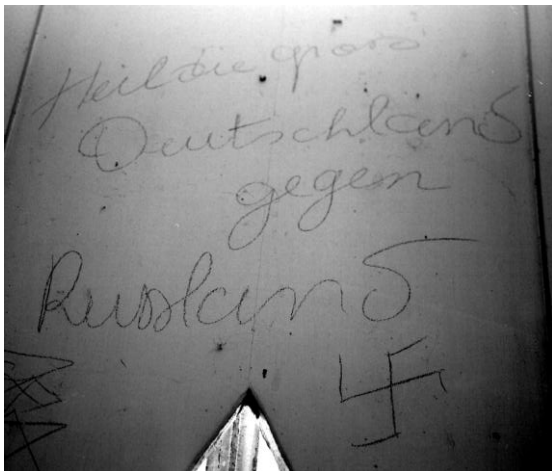 Heil die gross
Deutschland
gegen
Russland